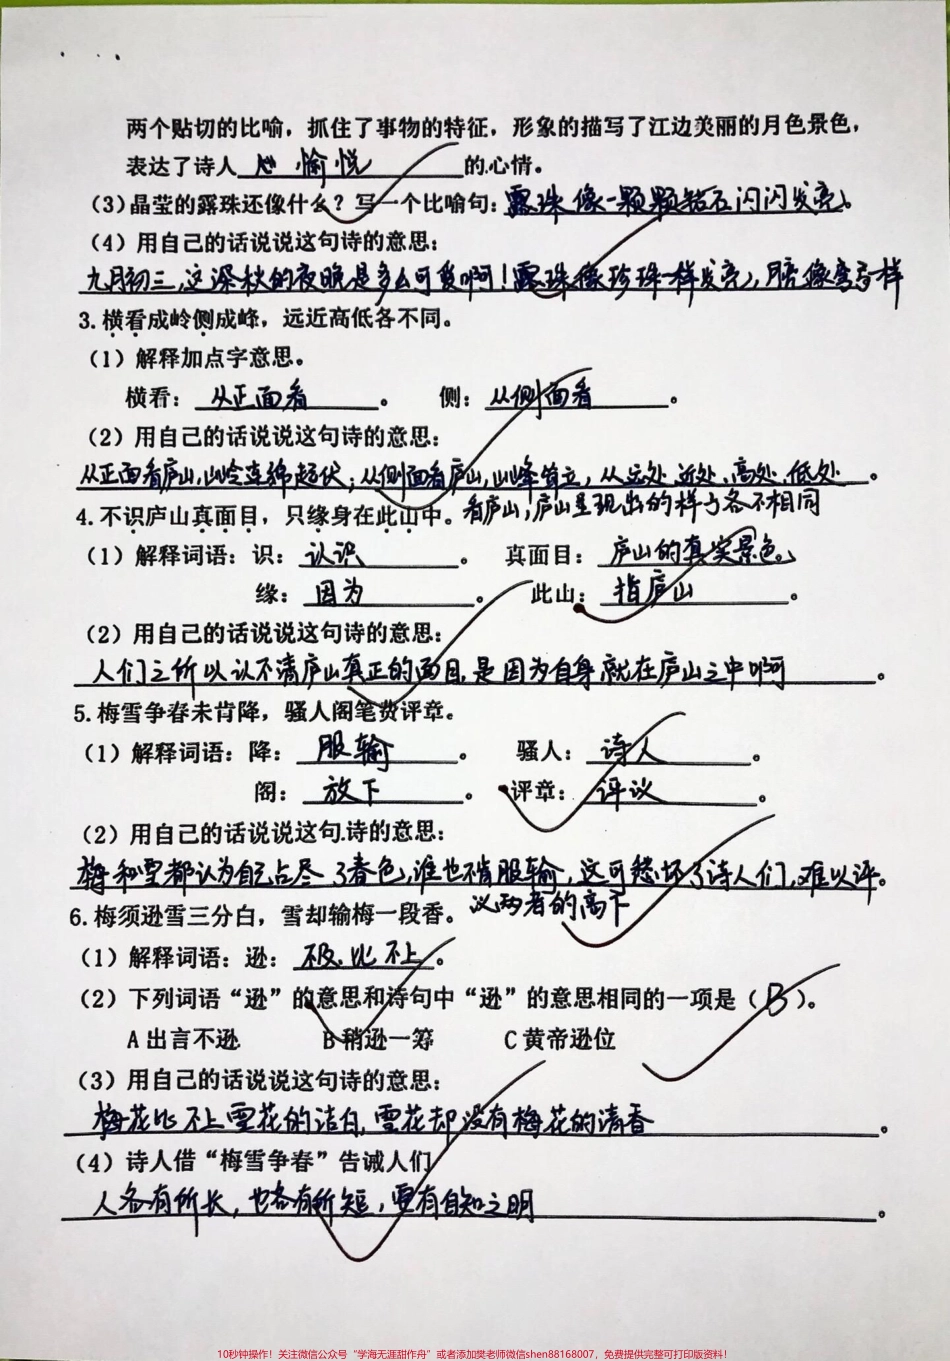 两个贴切的比喻，抓住了事物的特征，形象的描写了江边美丽的月色景色，
表达了诗人 心愉悦 的心情。
（3）晶莹的露珠还像什么？写一个比喻句：露珠像一颗颗钻石闪闪发亮。
（4）用自己的话说说这句诗的意思：
九月初三，这深秋的夜晚是多么可爱啊！露珠像珍珠一样发亮，月儿像弯弓一样
3.横看成岭侧成峰，远近高低各不同。
（1）解释加点字意思。
横看：从正面看。 侧：从侧面看。
（2）用自己的话说说这句诗的意思：
从正面看庐山，山岭连绵起伏；从侧面看庐山，山峰耸立，从远处、近处、高处、低处。
看庐山，庐山呈现出的样子各不相同
4.不识庐山真面目，只缘身在此山中。
（1）解释词语：识：认识。 真面目：庐山的真实景色。
缘：因为。 此山：指庐山。
（2）用自己的话说说这句诗的意思：
人们之所以认不清庐山真正的面目，是因为自身就在庐山之中啊。
5.梅雪争春未肯降，骚人阁笔费评章。
（1）解释词语：降：服输。 骚人：诗人。
阁：放下。 评章：评议。
（2）用自己的话说说这句诗的意思：
梅和雪都认为自己占尽了春色，谁也不肯服输，这可愁坏了诗人们，难以评。
议两者的高下
6.梅须逊雪三分白，雪却输梅一段香。
（1）解释词语：逊：不及，比不上。
（2）下列词语“逊”的意思和诗句中“逊”的意思相同的一项是（B）。
A 出言不逊 B 稍逊一筹 C 黄帝逊位
（3）用自己的话说说这句诗的意思：
梅花比不上雪花的洁白，雪花却没有梅花的清香。
（4）诗人借“梅雪争春”告诫人们
人各有所长，也各有所短，要有自知之明。
10秒钟操作！关注微信公众号“学海无涯甜作舟”或者添加樊老师微信shen88168007，免费提供完整可打印版资料！